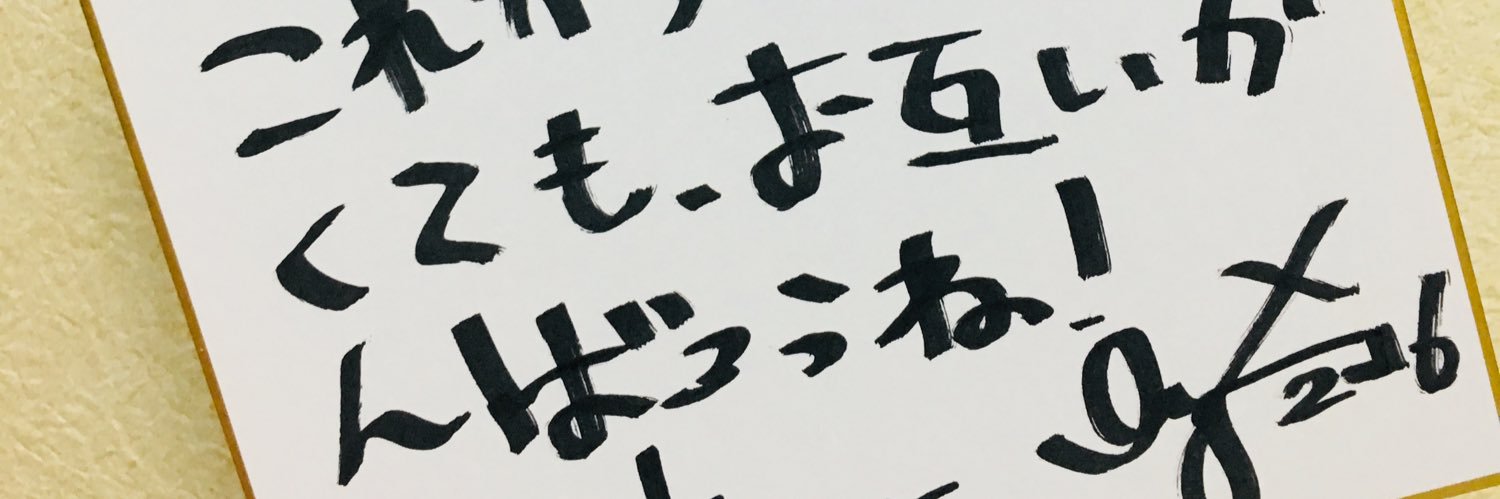 これから
くても、お互いが
んばろうね!
2016